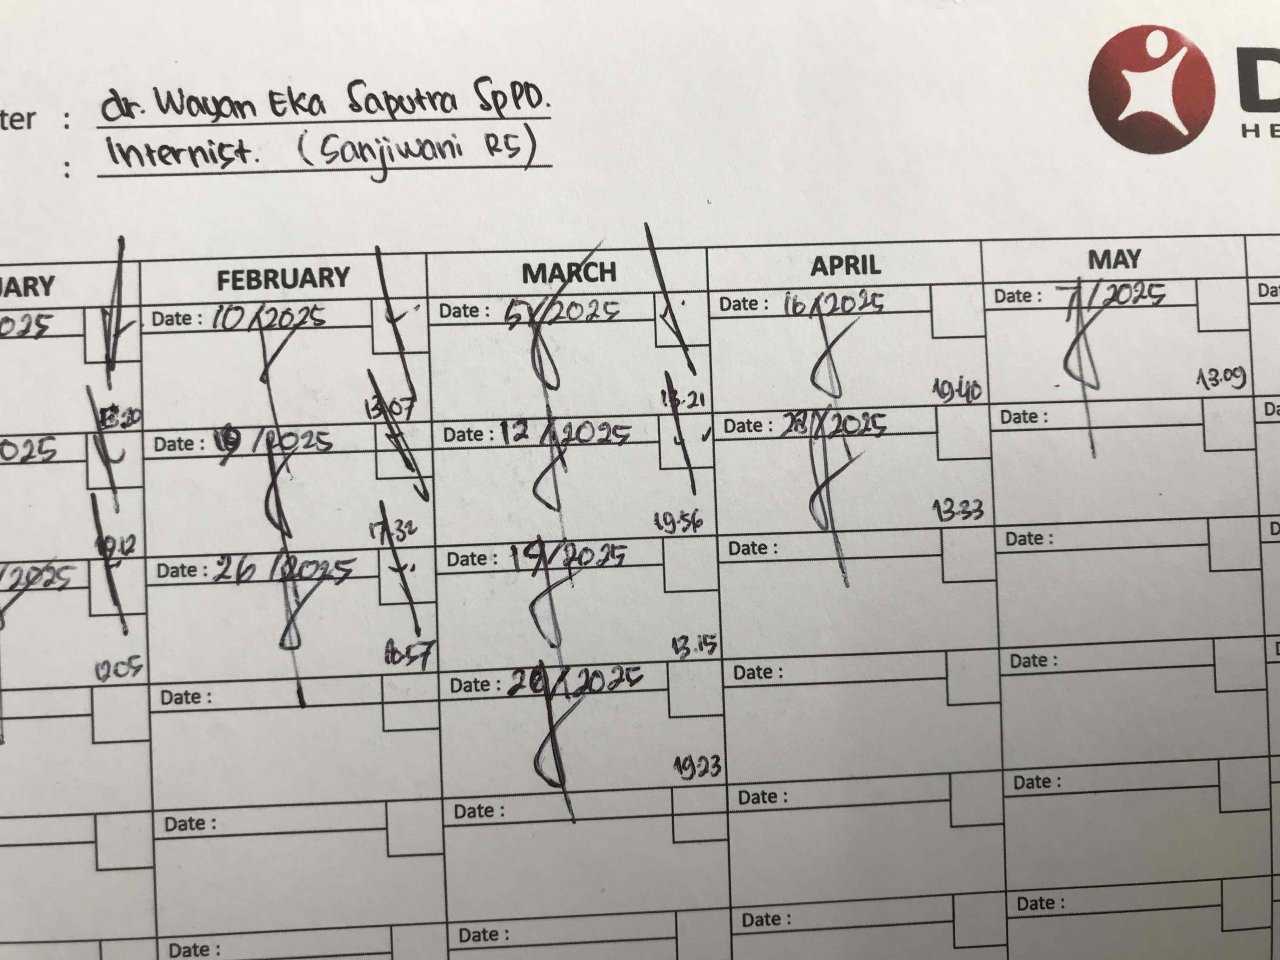 ter : dr. Wayan Eka Saputra SpPD.
: Internist. (Sanjiwani RS)
D
HE
UARY FEBRUARY MARCH APRIL MAY
025 Date : 10/2025 Date : 5/2025 Date : 16/2025 Date : 7/2025 Da
13.07 13.21 19.40 13.09
025 Date : 19/2025 Date : 12/2025 Date : 28/2025 Date : Da
17.32 19.56 13.33
/2025 Date : 26/2025 Date : 19/2025 Date : Date : D
12.05 16.57 13.15
Date : Date : 26/2025 Date : Date :
19.23
Date : Date : Date : Date :
Date : Date : Date : Date :